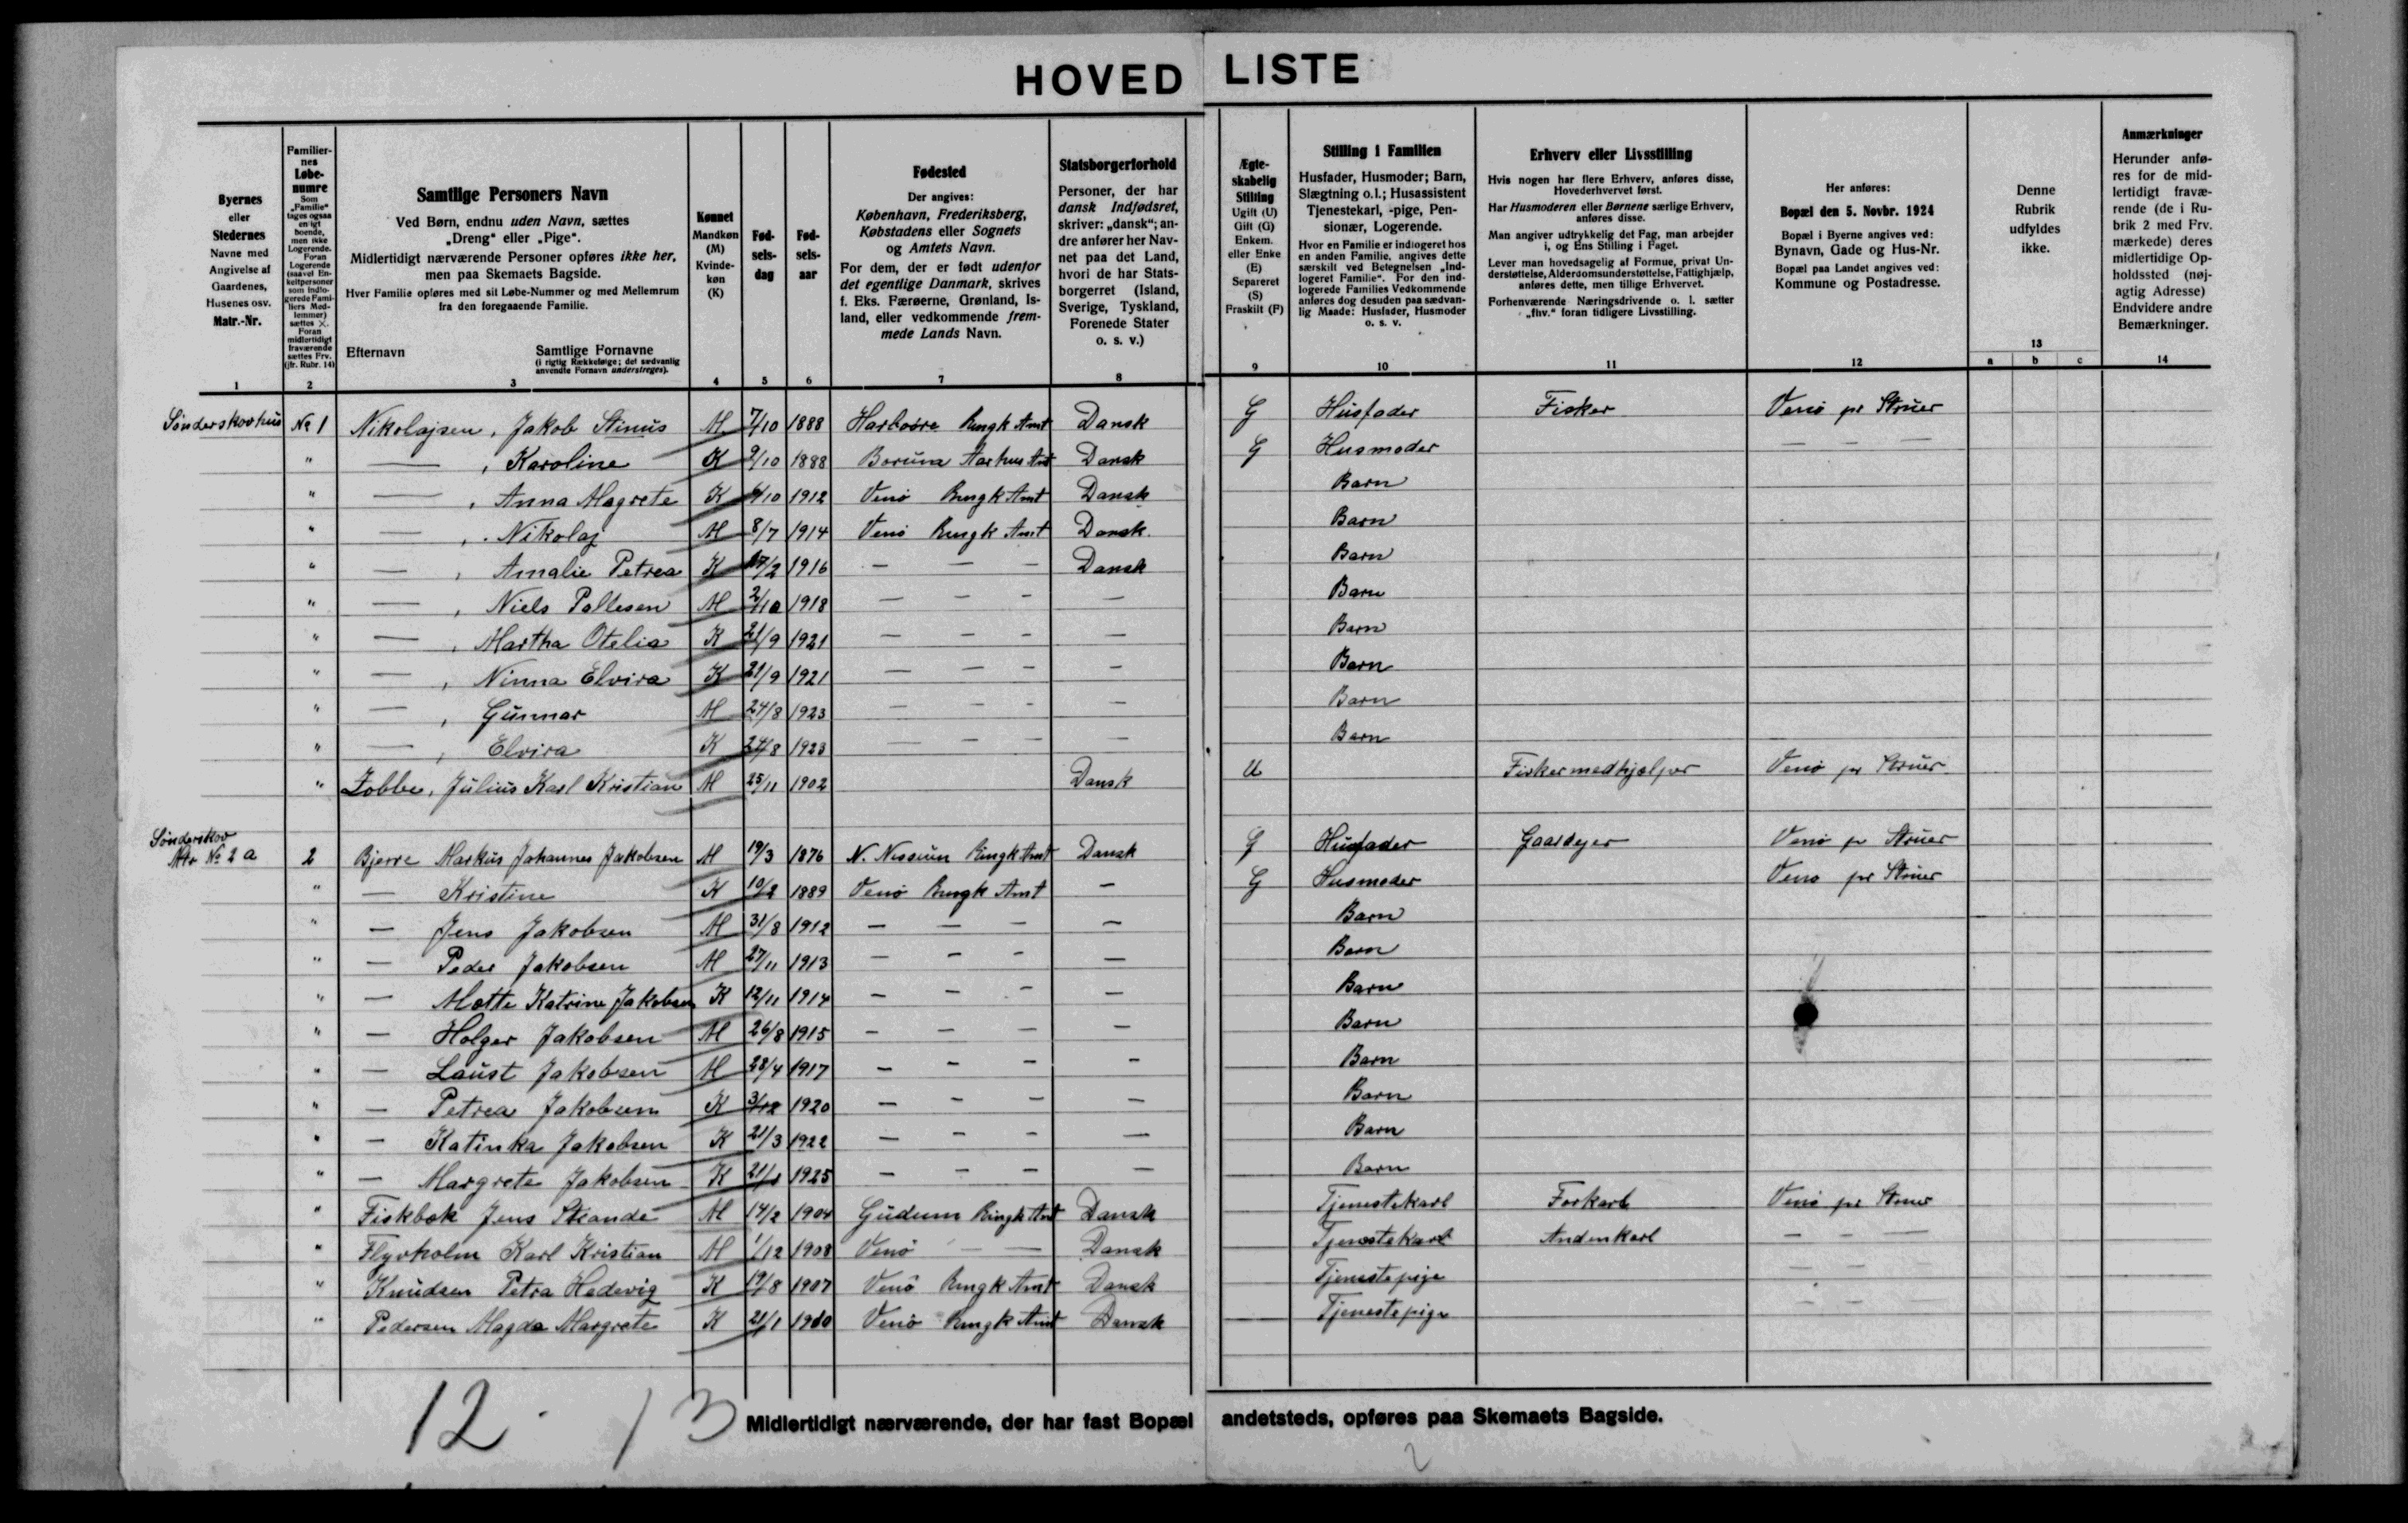 HOVED LISTE
Byernes eller Stedernes Navne med Angivelse af Gaardenes, Husenes osv. Matr.-Nr.
1
Familiernes Løbenumre
Som „Familie“ tages ogsaa enligt boende, men ikke Logerende. Foran Logerende (saavel Enkeltpersoner som indlogerede Familiers Medlemmer) sættes ×. Foran midlertidigt fraværende sættes Frv. (jfr. Rubr. 14)
2
Samtlige Personers Navn
Ved Børn, endnu uden Navn, sættes „Dreng“ eller „Pige“.
Midlertidigt nærværende Personer opføres ikke her, men paa Skemaets Bagside.
Hver Familie opføres med sit Løbe-Nummer og med Mellemrum fra den foregaaende Familie.
Efternavn
Samtlige Fornavne
(i rigtig Rækkefølge; det sædvanlig anvendte Fornavn understreges).
3
Kønnet
Mandkøn (M) Kvindekøn (K)
4
Fødselsdag
5
Fødselsaar
6
Fødested
Der angives:
København, Frederiksberg, Købstadens eller Sognets og Amtets Navn.
For dem, der er født udenfor det egentlige Danmark, skrives f. Eks. Færøerne, Grønland, Island, eller vedkommende fremmede Lands Navn.
7
Statsborgerforhold
Personer, der har dansk Indfødsret, skriver: „dansk“; andre anfører her Navnet paa det Land, hvori de har Statsborgerret (Island, Sverige, Tyskland, Forenede Stater o. s. v.)
8
Ægteskabelig Stilling
Ugift (U)
Gift (G)
Enkem. eller Enke (E)
Separeret (S)
Fraskilt (F)
9
Stilling i Familien
Husfader, Husmoder; Barn, Slægtning o.l.; Husassistent Tjenestekarl, -pige, Pensionær, Logerende.
Hvor en Familie er indlogeret hos en anden Familie, angives dette særskilt ved Betegnelsen „Indlogeret Familie“. For den indlogerede Families Vedkommende anføres dog desuden paa sædvanlig Maade: Husfader, Husmoder o. s. v.
10
Erhverv eller Livsstilling
Hvis nogen har flere Erhverv, anføres disse, Hovederhvervet først.
Har Husmoderen eller Børnene særlige Erhverv, anføres disse.
Man angiver udtrykkelig det Fag, man arbejder i, og Ens Stilling i Faget.
Lever man hovedsagelig af Formue, privat Understøttelse, Alderdomsunderstøttelse, Fattighjælp, anføres dette, men tillige Erhvervet.
Forhenværende Næringsdrivende o. l. sætter „fhv.“ foran tidligere Livsstilling.
11
Her anføres:
Bopæl den 5. Novbr. 1924
Bopæl i Byerne angives ved:
Bynavn, Gade og Hus-Nr.
Bopæl paa Landet angives ved:
Kommune og Postadresse.
12
Denne Rubrik udfyldes ikke.
13
a b c
Anmærkninger
Herunder anføres for de midlertidigt fraværende (de i Rubrik 2 med Frv. mærkede) deres midlertidige Opholdssted (nøjagtig Adresse) Endvidere andre Bemærkninger.
14
Sønderskovhus № 1 Nikolajsen, Jakob Stinus M 7/10 1888 Harboöre Ringk Amt Dansk G Husfader Fisker Venø pr Struer
" — , Karoline K 9/10 1888 Borum Aarhus Amt Dansk G Husmoder — — —
" — , Anna Magrete K 6/10 1912 Venø Ringk Amt Dansk Barn
" — , Nikolaj M 8/7 1914 Venø Ringk Amt Dansk Barn
" — , Amalie Petrea K 17/2 1916 — — — Dansk Barn
" — , Niels Pallesen M 2/10 1918 — — — — Barn
" — , Martha Otelia K 21/9 1921 — — — — Barn
" — , Ninna Elvira K 21/9 1921 — — — — Barn
" — , Gunnar M 24/8 1923 — — — — Barn
" — , Elvira K 24/8 1923 — — — — Barn
" Lobbe, Julius Karl Kristian M 25/11 1902 Dansk U Fiskermedhjælper Venø pr Struer
Sønderskov
Mtr № 2 a 2 Bjerre Markus Johannes Jakobsen M 19/3 1876 N. Nissum Ringk Amt Dansk G Husfader Gaardejer Venø pr Struer
" — Kristine K 10/2 1889 Venø Ringk Amt — G Husmoder Venø pr Struer
" — Jens Jakobsen M 31/8 1912 — — — — Barn
" — Peder Jakobsen M 27/11 1913 — — — — Barn
" — Mette Katrine Jakobsen K 12/11 1914 — — — — Barn
" — Holger Jakobsen M 26/8 1915 — — — — Barn
" — Laust Jakobsen M 28/4 1917 — — — — Barn
" — Petrea Jakobsen K 3/12 1920 — — — — Barn
" — Katinka Jakobsen K 21/3 1922 — — — — Barn
" — Margrete Jakobsen K 21/1 1925 — — — — Barn
" Fiskbæk Jens Strande M 14/2 1904 Gudum Ringk Amt Dansk Tjenestekarl Forkarl Venø pr Struer
" Flyvholm Karl Kristian M 1/12 1908 Venø — — Dansk Tjenestekarl Andenkarl — — —
" Knudsen Petra Hedevig K 19/8 1907 Venø Ringk Amt Dansk Tjenestepige — — —
" Pedersen Magda Margrete K 21/1 1910 Venø Ringk Amt Dansk Tjenestepige — — —
12 13
Midlertidigt nærværende, der har fast Bopæl andetsteds, opføres paa Skemaets Bagside.
2